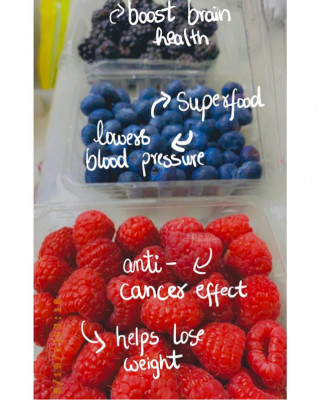 boost brain
health
Superfood
lowers
blood pressure
anti-
cancer effect
helps lose
weight